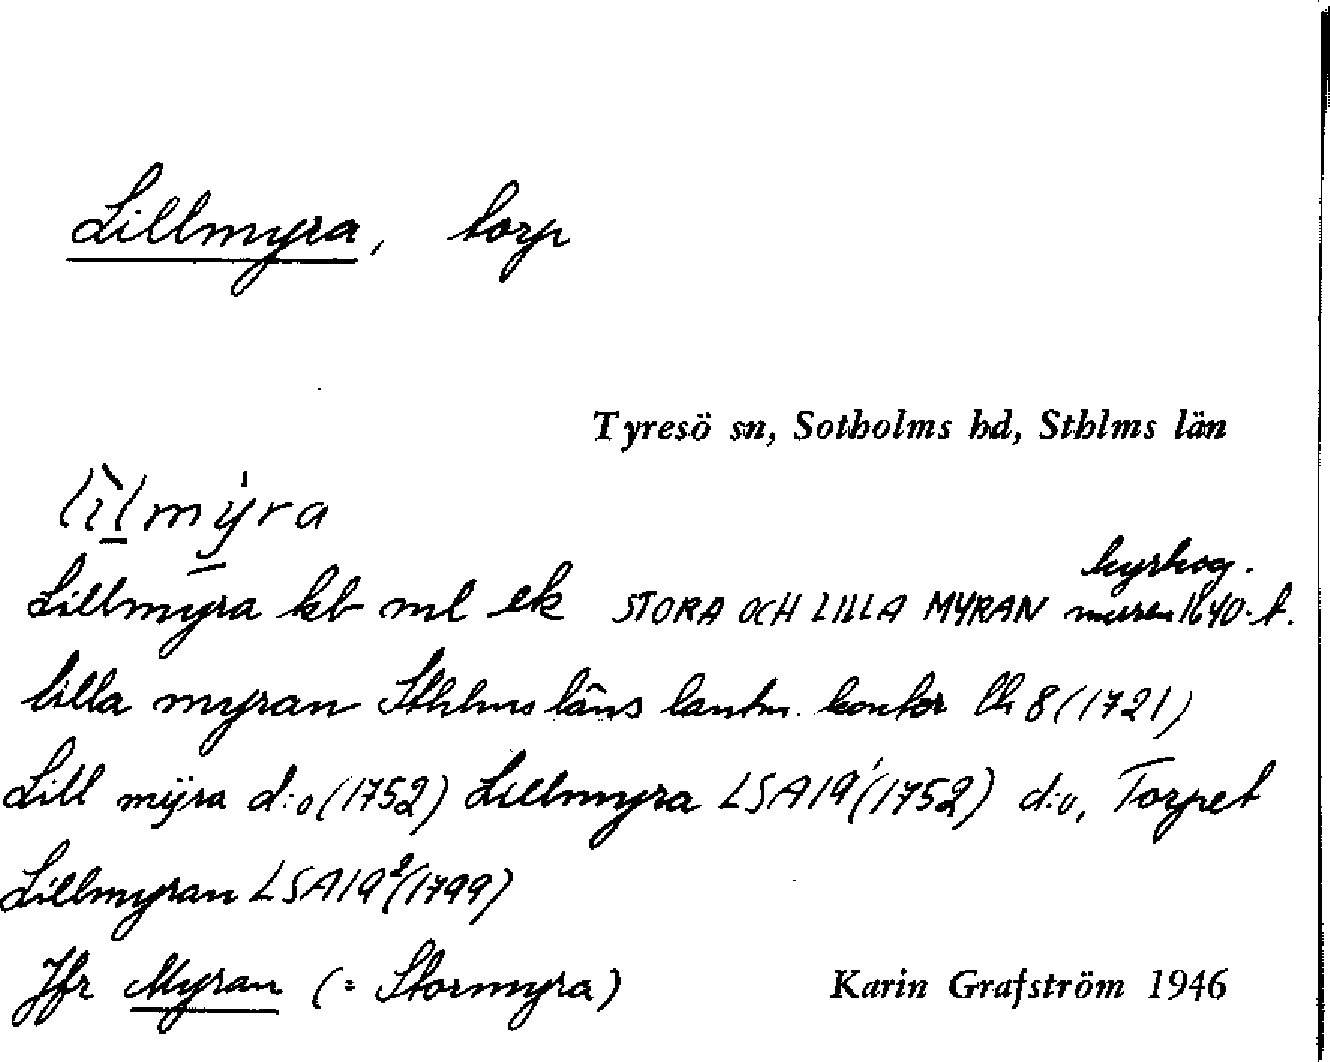 Lillmyra, torp
Tyresö sn, Sotholms hd, Sthlms län
lìlmýra
kyrkog.
Lillmyra kb ml ek STORA OCH LILLA MYRAN 1640-t.
lilla myran Sthlms läns lantm. kontor lh 8 (1721)
Lill mÿra d:o (1752) Lillmyra LSA 19¹ (1752) d:o, Torpet
Lillmyran LSA 19² (1799)
Jfr Myran (= Stormyra)
Karin Grafström 1946